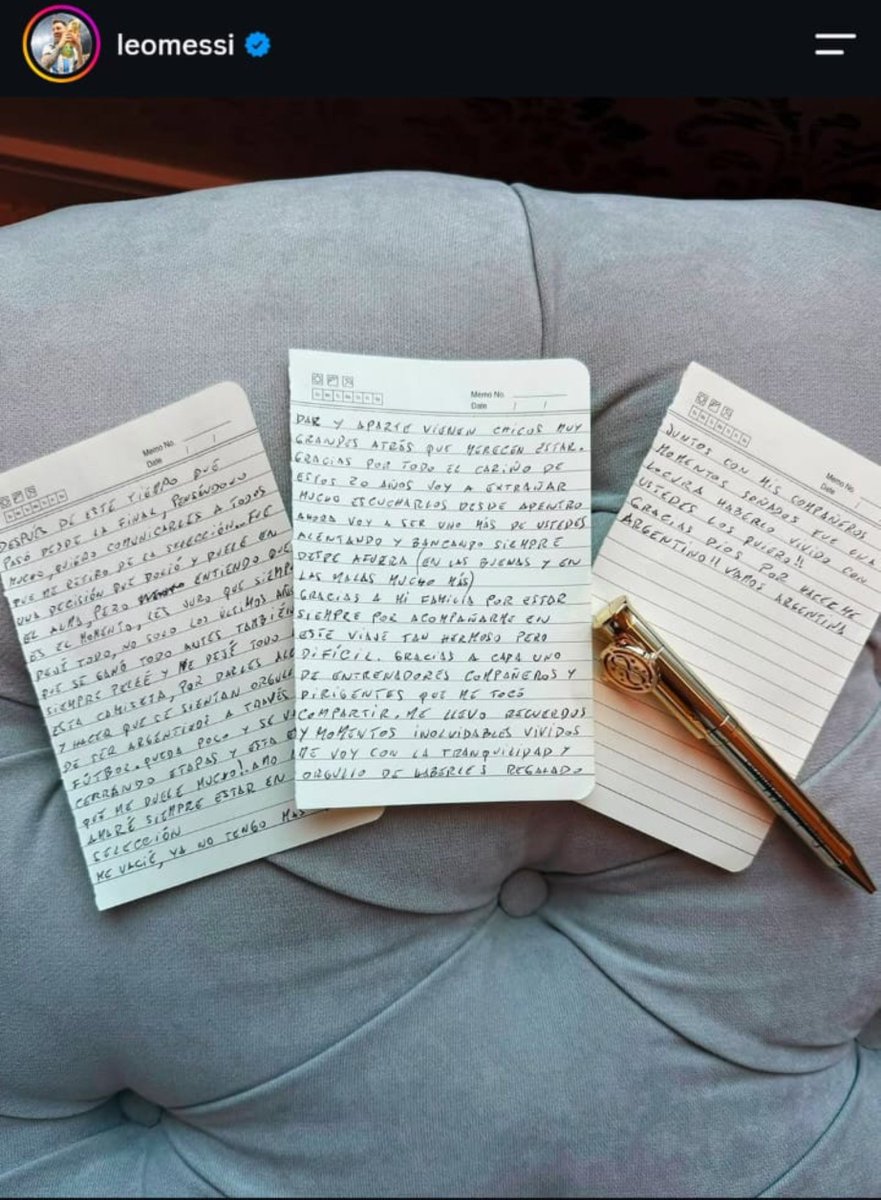 leomessi
Memo No.
Date / /
DESPUÉS DE ESTE TIEMPO QUE
PASÓ DESDE LA FINAL, PENSÁNDOLO
MUCHO, QUIERO COMUNICARLES A TODOS
QUE ME RETIRO DE LA SELECCIÓN. FUE
UNA DECISIÓN QUE DOLIÓ Y DUELE EN
EL ALMA, PERO ENTIENDO QUE
ES EL MOMENTO, LES JURO QUE SIEMPR
DEJÉ TODO, NO SOLO LOS ÚLTIMOS AÑOS
QUE SE GANÓ TODO ANTES TAMBIÉN
SIEMPRE PELEÉ Y ME DEJÉ TODO
ESTA CAMISETA, POR DARLES ALE
Y HACER QUE SE SIENTAN ORGULL
DE SER ARGENTINOS A TRAVÉS
FÚTBOL. QUEDA POCO Y SE VA
CERRANDO ETAPAS Y ESTA E
QUE ME DUELE MUCHO! AMO
AMARÉ SIEMPRE ESTAR EN
SELECCIÓN
ME VACIÉ, YA NO TENGO MÁS
Memo No.
Date / /
DAR Y APARTE VIENEN CHICOS MUY
GRANDES ATRÁS QUE MERECEN ESTAR.
GRACIAS POR TODO EL CARIÑO DE
ESTOS 20 AÑOS VOY A EXTRAÑAR
MUCHO ESCUCHARLOS DESDE ADENTRO
AHORA VOY A SER UNO MÁS DE USTEDES
ALENTANDO Y BANCANDO SIEMPRE
DESDE AFUERA (EN LAS BUENAS Y EN
LAS MALAS MUCHO MÁS)
GRACIAS A MI FAMILIA POR ESTAR
SIEMPRE POR ACOMPAÑARME EN
ESTE VIAJE TAN HERMOSO PERO
DIFÍCIL. GRACIAS A CADA UNO
DE ENTRENADORES COMPAÑEROS Y
DIRIGENTES QUE ME TOCÓ
COMPARTIR. ME LLEVO RECUERDOS
Y MOMENTOS INOLVIDABLES VIVIDOS
ME VOY CON LA TRANQUILIDAD Y
ORGULLO DE HABERLES REGALADO
Memo No.
Date /
JUNTOS CON MIS COMPAÑEROS
MOMENTOS SOÑADOS FUE UNA
LOCURA HABERLO VIVIDO CON
USTEDES LOS QUIERO!!
GRACIAS DIOS POR HACERME
ARGENTINO!! VAMOS ARGENTINA